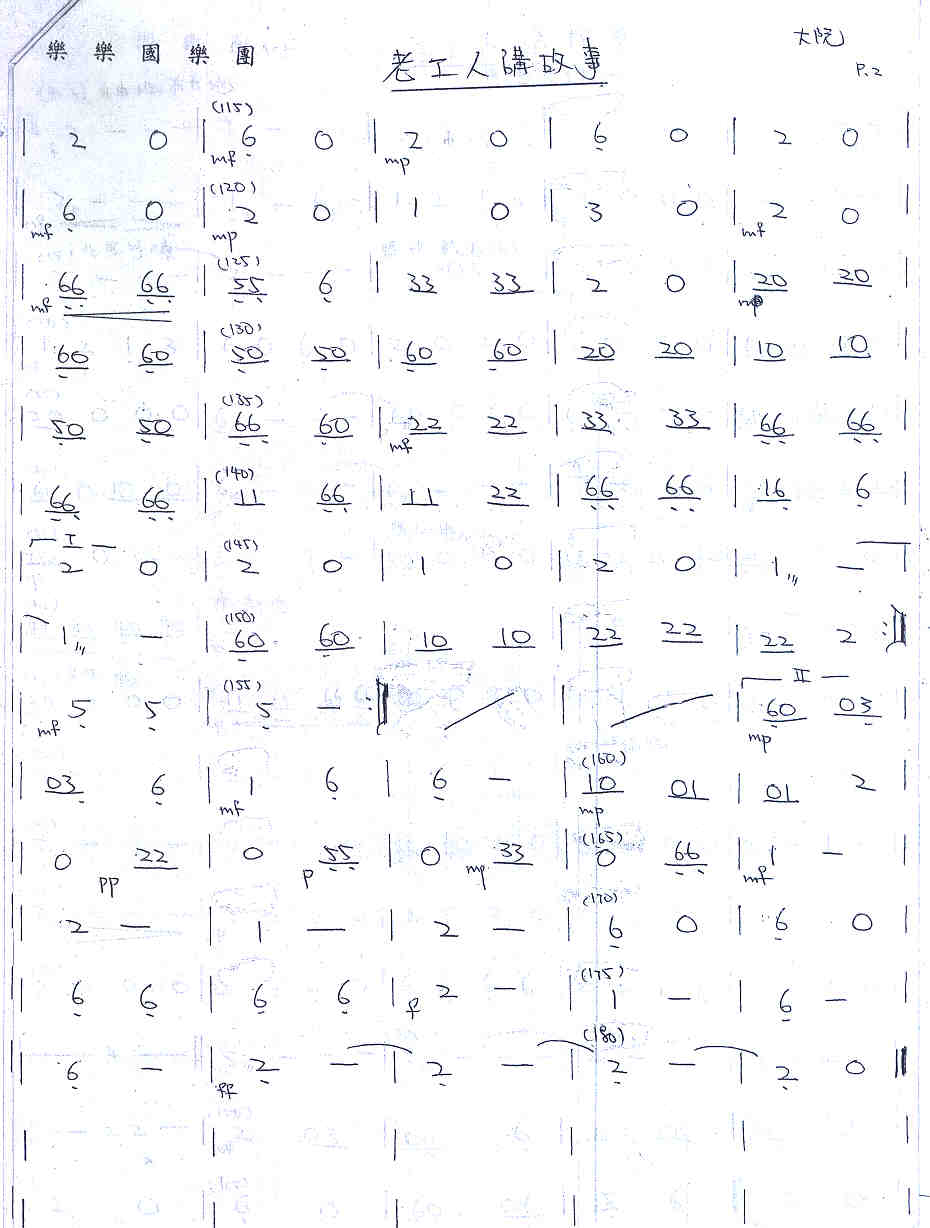 樂樂國樂團
老工人講故事
大阮
P.2
(115)
| 2 0 | 6 0 | 2 0 | 6 0 | 2 0 |
mf mp
(120)
| 6 0 | 2 0 | 1 0 | 3 0 | 2 0 |
mf mp mf
(125)
| 66 66 | 55 6 | 33 33 | 2 0 | 20 20 |
mf mp
(130)
| 60 60 | 50 50 | 60 60 | 20 20 | 10 10 |
(135)
| 50 50 | 66 60 | 22 22 | 33 33 | 66 66 |
mf
(140)
| 66 66 | 11 66 | 11 22 | 66 66 | 16 6 |
I (145)
| 2 0 | 2 0 | 1 0 | 2 0 | 1 — |
(150)
| 1 — | 60 60 | 10 10 | 22 22 | 22 2 :||
(155) II
| 5 5 | 5 — :|| | | 60 03 |
mf mp
(160)
| 03 6 | 1 6 | 6 — | 10 01 | 01 2 |
mf mp
(165)
| 0 22 | 0 55 | 0 33 | 0 66 | 1 — |
pp p mp mf
(170)
| 2 — | 1 — | 2 — | 6 0 | 6 0 |
(175)
| 6 6 | 6 6 | 2 — | 1 — | 6 — |
f
(180)
| 6 — | 2 — | 2 — | 2 — | 2 0 ||